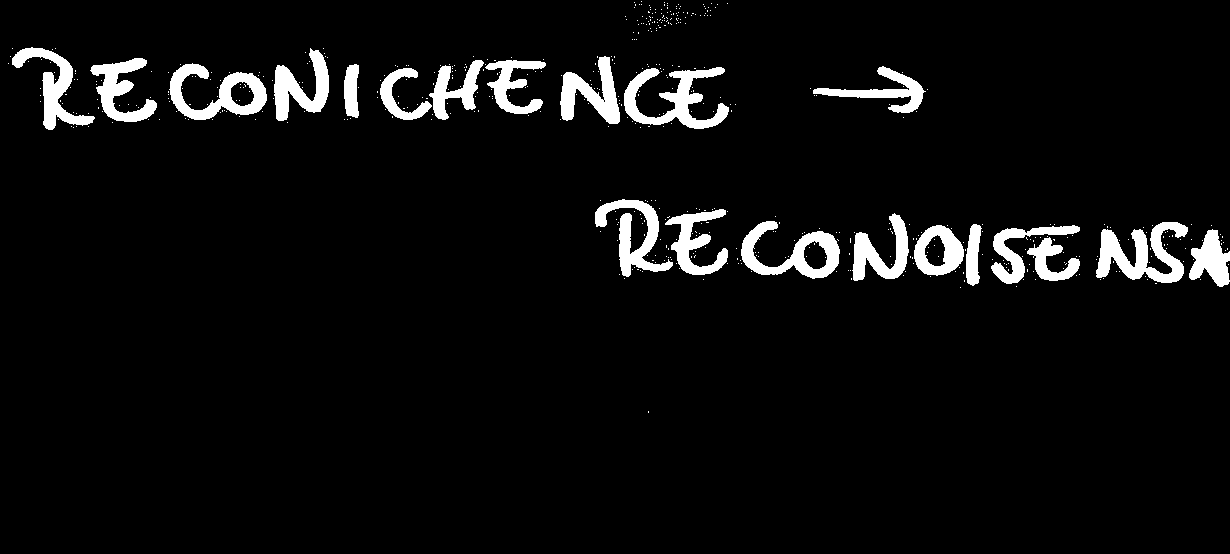 RECONICHENCE →
RECONOISENSA